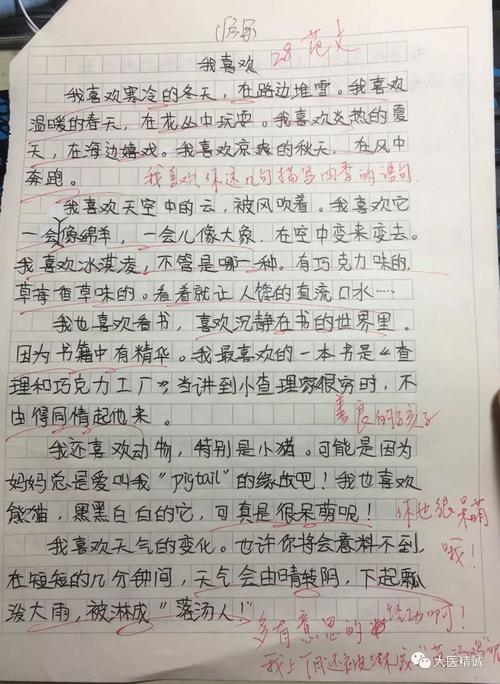 28 范文
我喜欢
我喜欢寒冷的冬天，在路边堆雪。我喜欢
温暖的春天，在花丛中玩耍。我喜欢炎热的夏
天，在海边嬉戏。我喜欢凉爽的秋天，在风中
奔跑。
我喜欢你这几句描写四季的语句
我喜欢天空中的云，被风吹着。我喜欢它
一会像绵羊，一会儿像大象，在空中变来变去。
我喜欢冰淇凌，不管是哪一种。有巧克力味的，
草莓香草味的。看着就让人馋的直流口水……
我也喜欢看书，喜欢沉静在书的世界里。
因为书籍中有精华。我最喜欢的一本书是《查
理和巧克力工厂》，当讲到小查理家很穷时，不
由得同情起他来。
善良的孩子
我还喜欢动物，特别是小猪。可能是因为
妈妈总是爱叫我“pigtail”的缘故吧！我也喜欢
熊猫，黑黑白白的它，可真是很呆萌呢！
你也很呆萌
哦！
我喜欢天气的变化。也许你将会意料不到，
在短短的几分钟间，天气会由晴转阴，下起瓢
泼大雨，被淋成“落汤人”！
多有意思的经历啊！
我上个月还被淋成“落汤鸡”呢
大医精诚